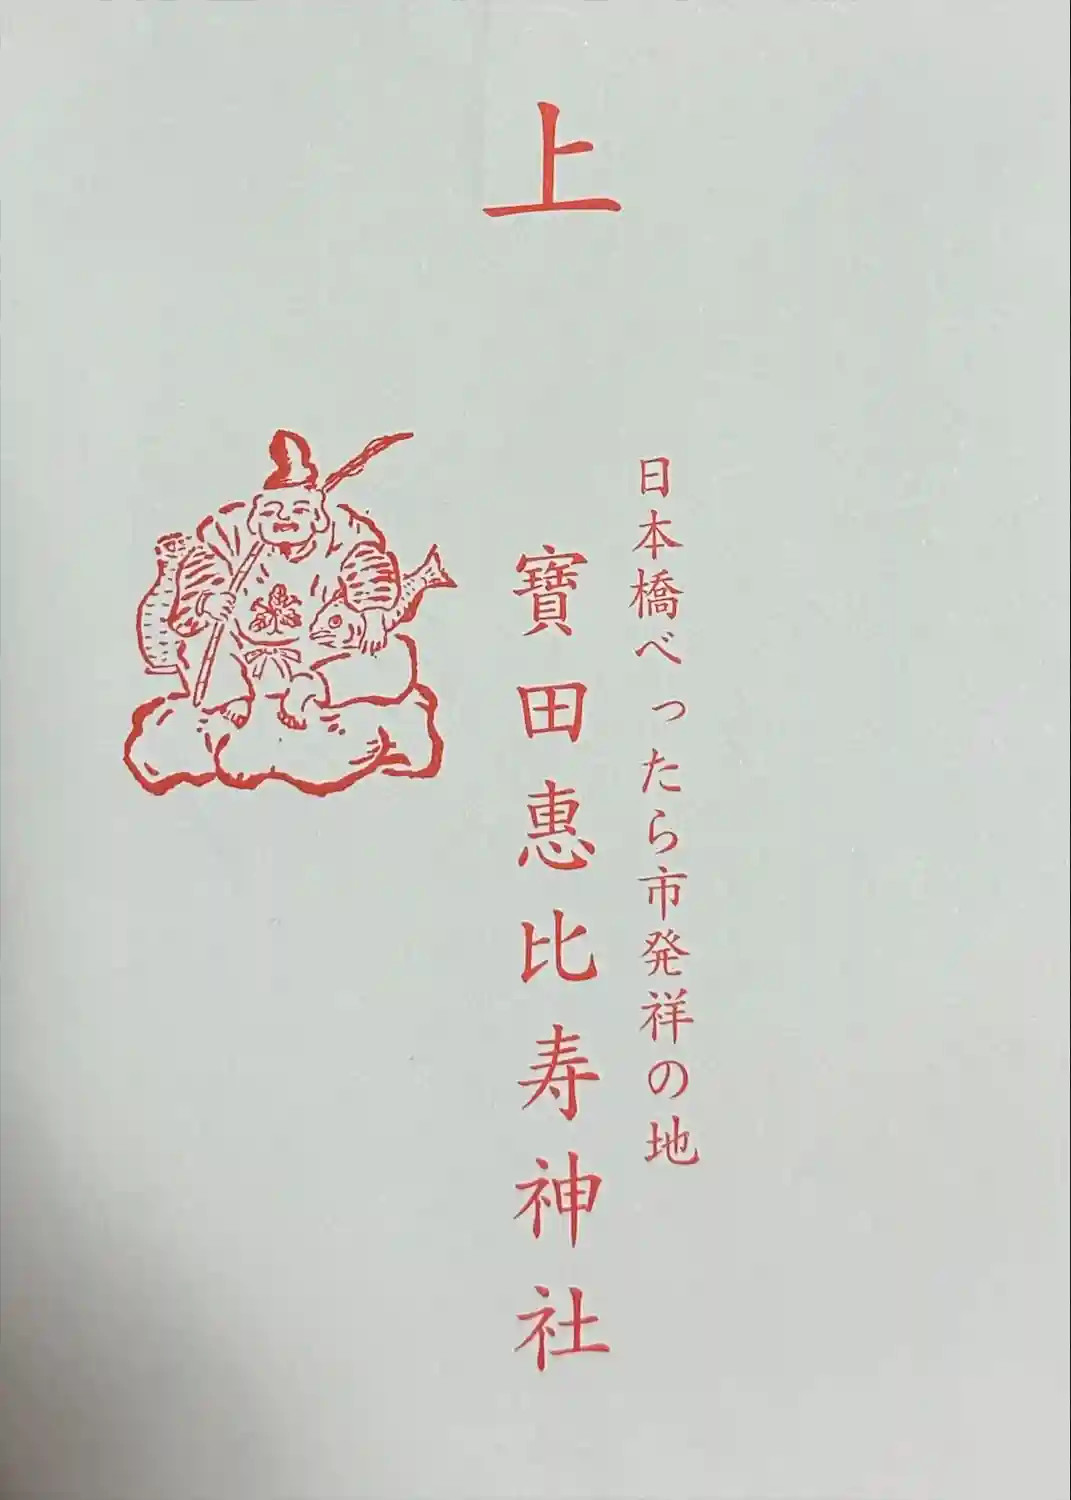 上
日本橋べったら市発祥の地
寶田恵比寿神社